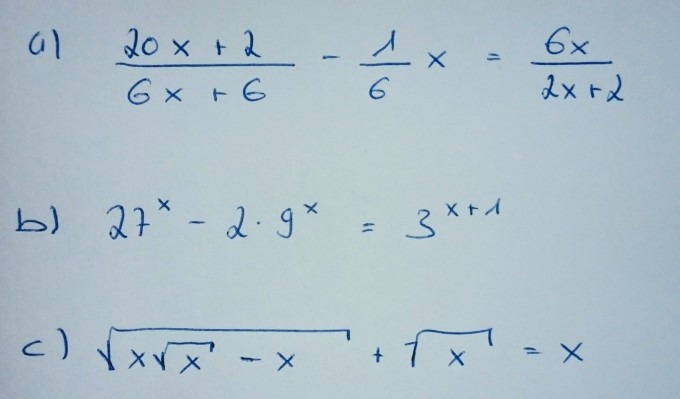 a) (20x + 2)/(6x + 6) - 1/6 x = 6x/(2x + 2)
b) 27^x - 2 · 9^x = 3^(x+1)
c) √(x√x - x) + √x = x